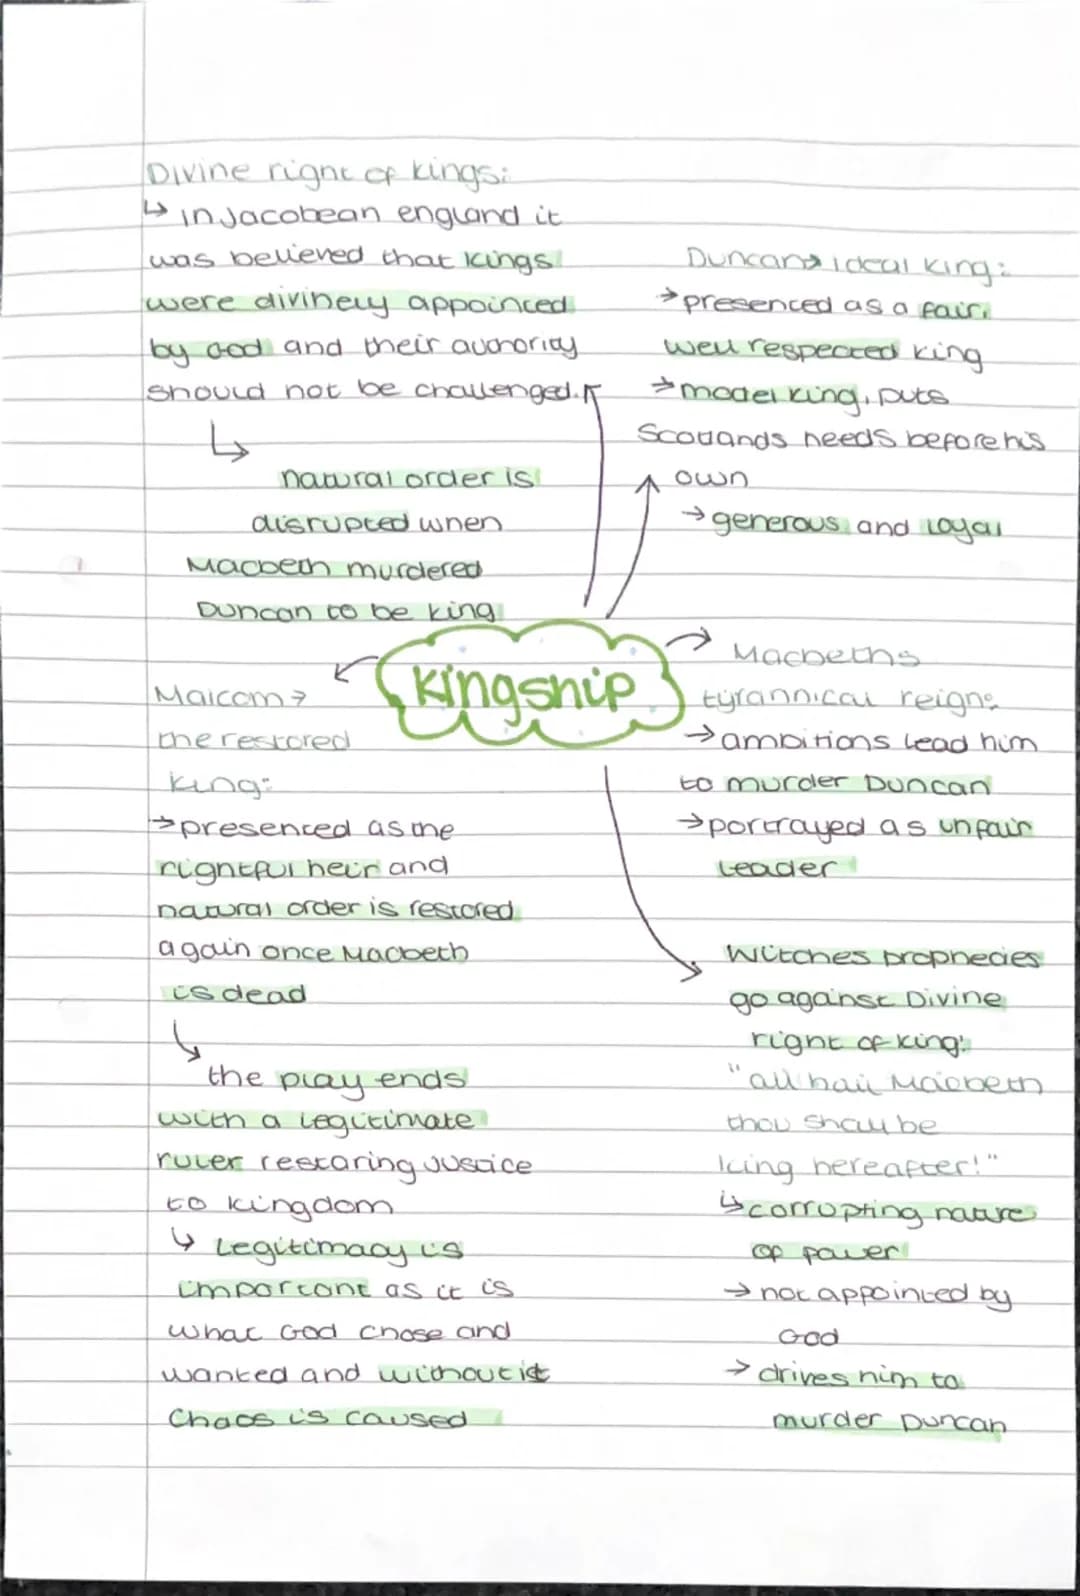 Divine right of kings:
↳ in Jacobean england it
was believed that kings
were divinely appointed
by God and their authority
should not be challenged.
↳
natural order is
disrupted when
Macbeth murdered
Duncan to be king
Duncan→ ideal king:
→presented as a fair,
well respected king
→model king, puts
Scotlands needs before his
own
→generous and loyal
Kingship
Malcom→
the restored
king:
→presented as the
rightful heir and
natural order is restored
again once Macbeth
is dead
↳
the play ends
with a legitimate
ruler restoring justice
to kingdom
↳ Legitimacy is
important as it is
what God chose and
wanted and without it
Chaos is caused
Macbeths
tyrannical reign:
→ambitions lead him
to murder Duncan
→portrayed as unfair
leader
Witches prophecies
go against Divine
right of king:
"all hail Macbeth
thou shall be
king hereafter!"
↳corrupting nature
of power
→not appointed by
God
→drives him to
murder Duncan